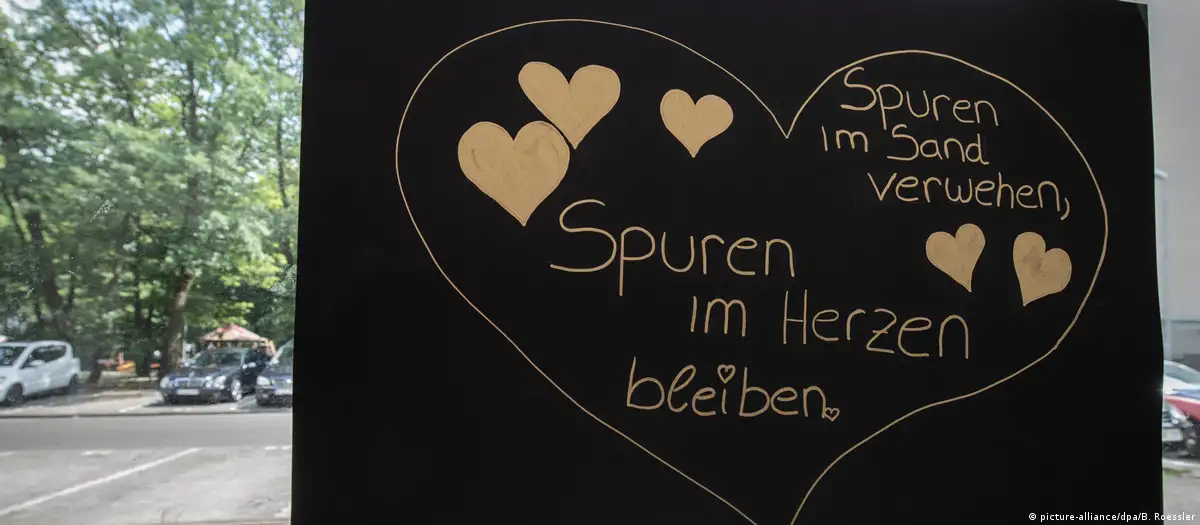 Spuren
im Sand
verwehen,
Spuren
im Herzen
bleiben.
© picture-alliance/dpa/B. Roessler